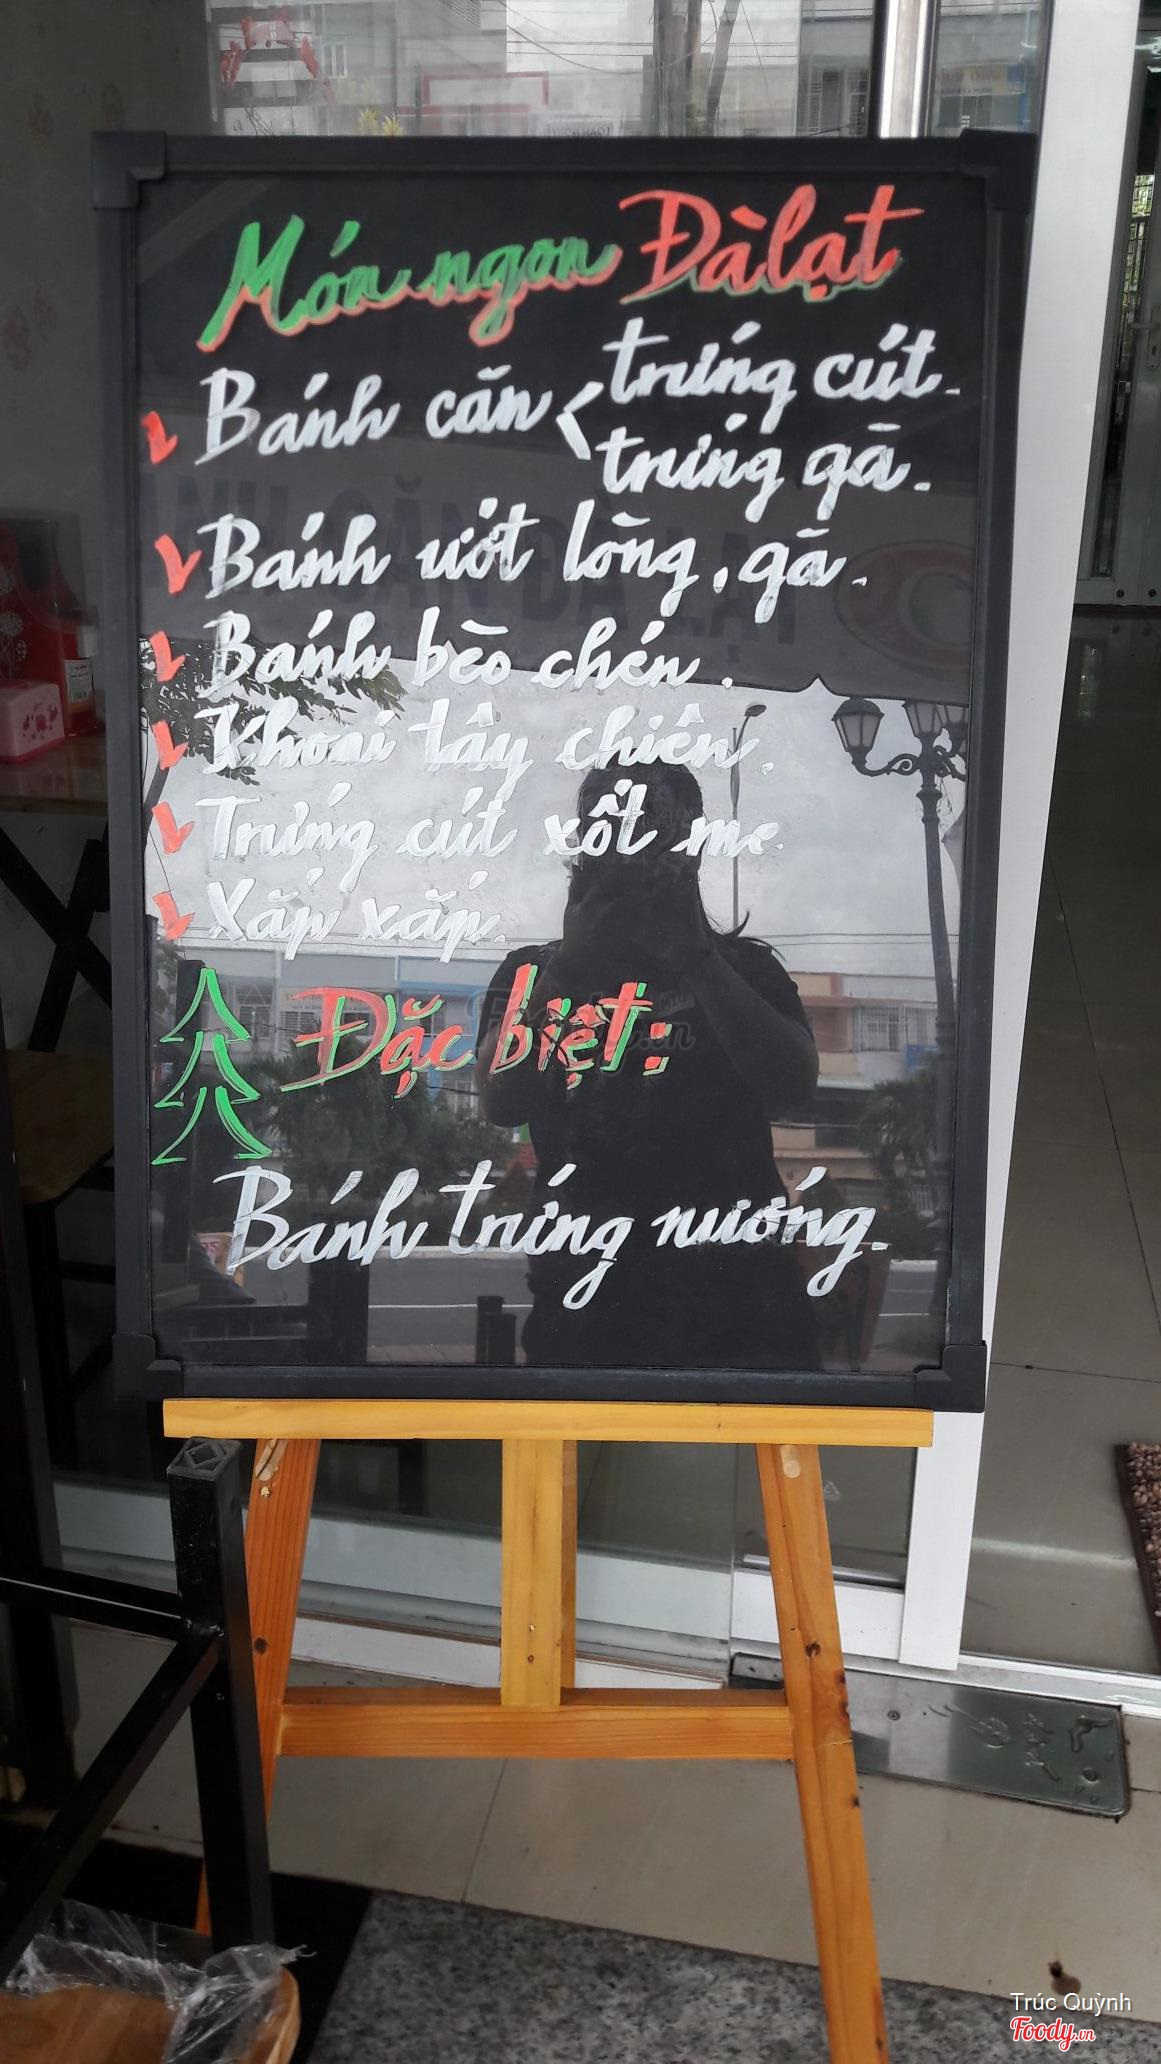 Món ngon Đà lạt
Bánh căn < trứng cút.
trứng gà.
Bánh ướt lòng, gà.
Bánh bèo chén.
Khoai tây chiên.
Trứng cút xốt me.
Xắp xắp.
Đặc biệt:
Bánh trứng nướng.
Trúc Quỳnh
Foody.vn